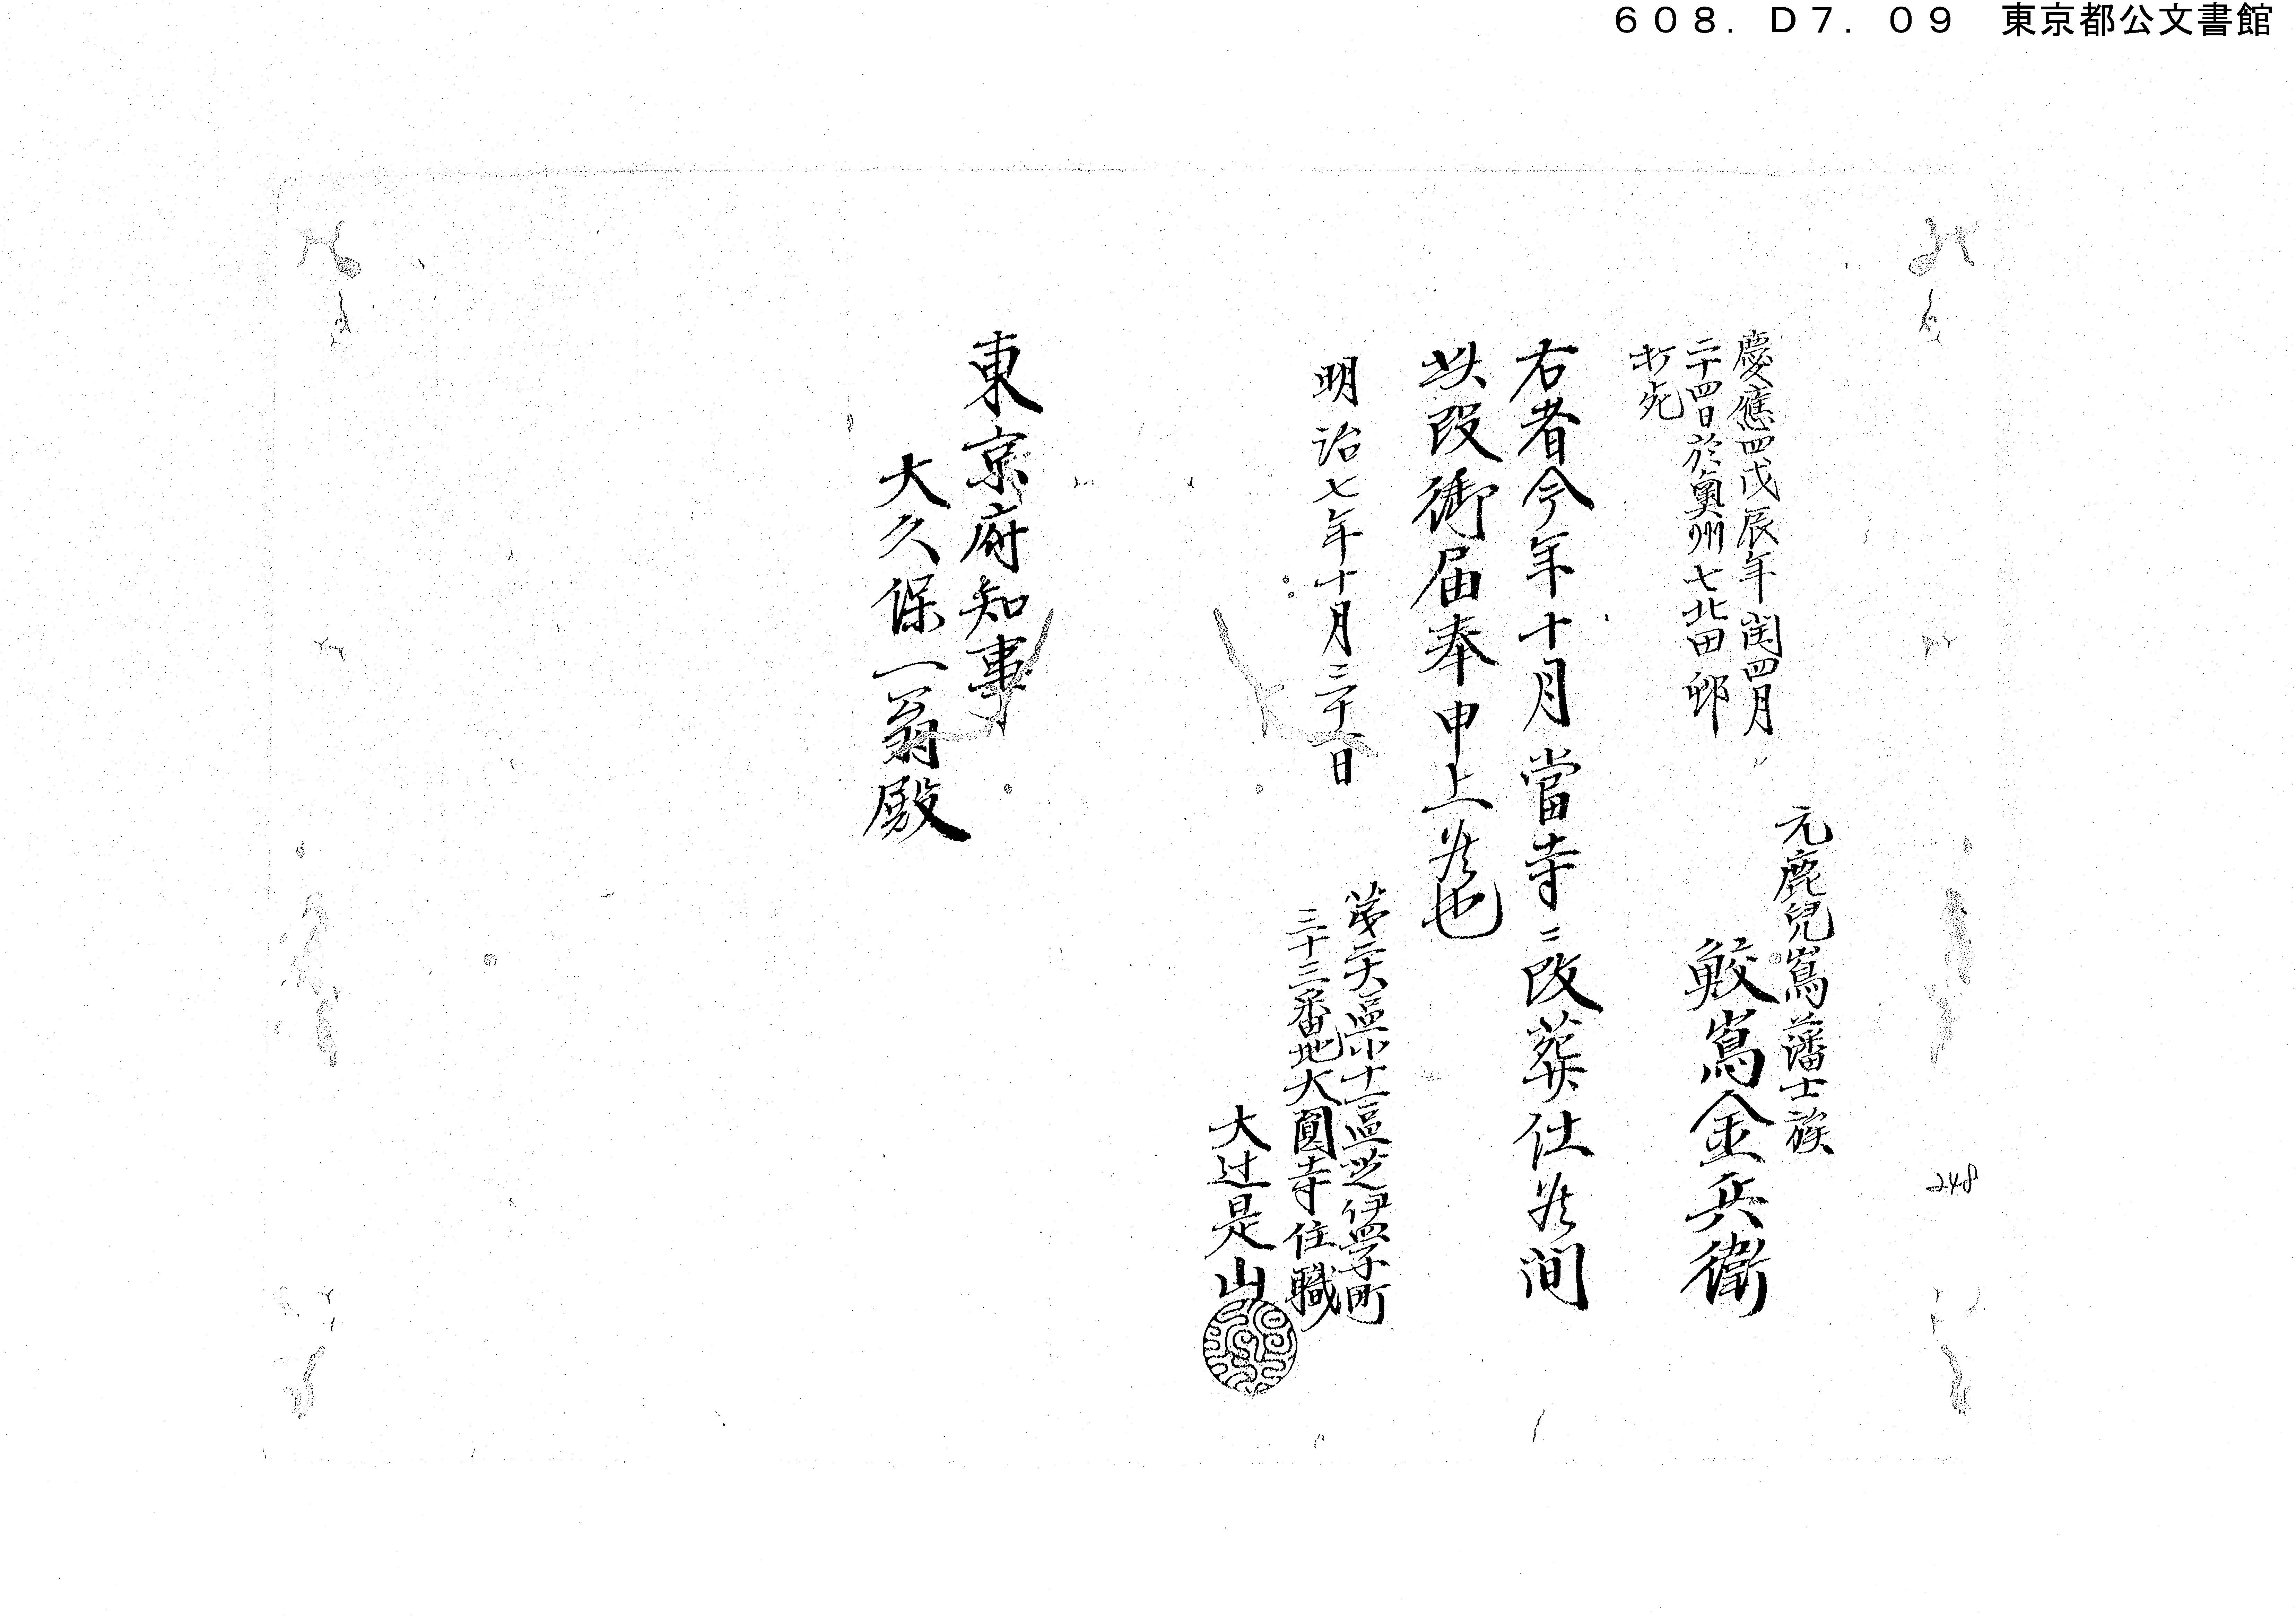 ６０８．Ｄ７．０９　東京都公文書館
元鹿兒嶌藩士族
慶應四戊辰年閏四月
二十四日於奥州七北田邨
打死
鮫嶌金兵衛
右者今年十月當寺ニ改葬仕候間
此段御届奉申上候也
明治七年十月三十一日
第二大區小十一區芝伊皿子町
三十三番地大圓寺住職
大辻是山
東京府知事
大久保一翁殿
248